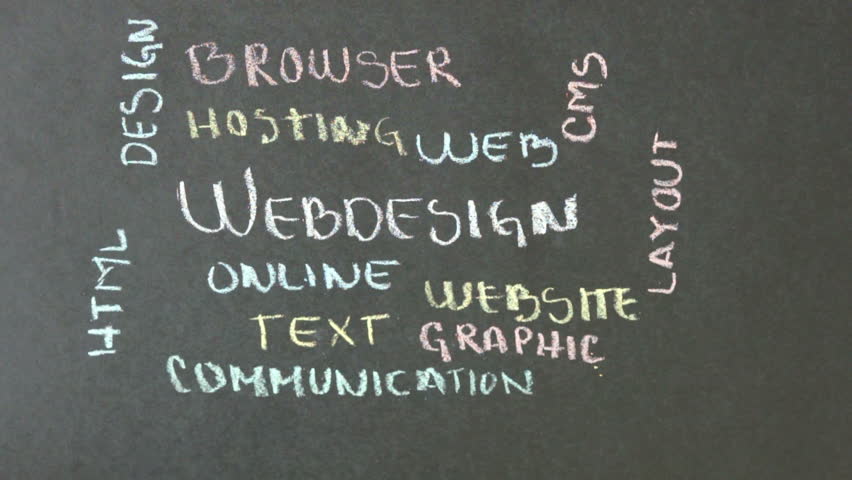 DESIGN
BROWSER
CMS
HOSTING
WEB
LAYOUT
WEBDESIGN
HTML
ONLINE
WEBSITE
TEXT
GRAPHIC
COMMUNICATION